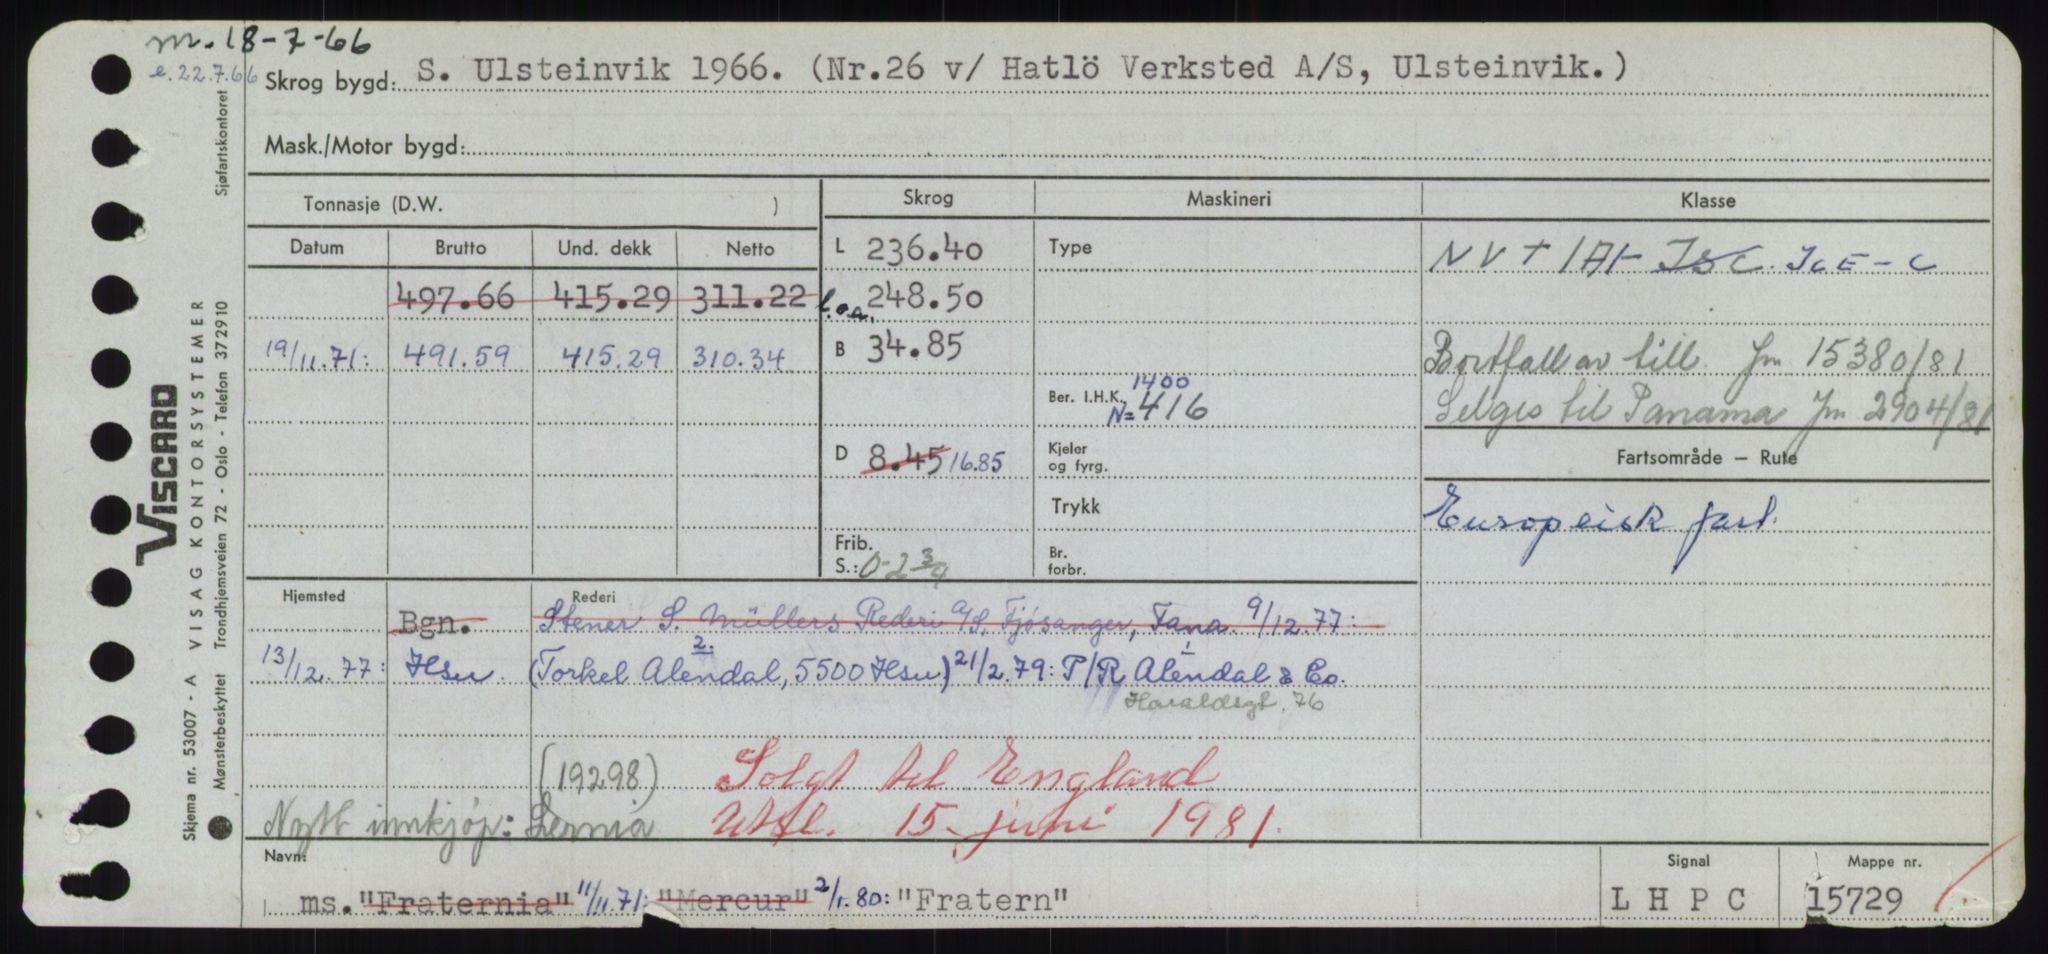 m. 18-7-66
e. 22.7.66
Skrog bygd: S. Ulsteinvik 1966. (Nr.26 v/ Hatlö Verksted A/S, Ulsteinvik.)
Mask./Motor bygd:
Tonnasje (D.W. ) Skrog Maskineri Klasse
Datum Brutto Und. dekk Netto L 236.40 Type NV + 1A1- IsC. IcE-C
497.66 415.29 311.22 l.o.a. 248.50
19/11.71: 491.59 415.29 310.34 B 34.85 Bortfall av till. Jm 15380/81
Ber. I.H.K. 1400
N=416 Selges til Panama Jm 2904/81
D 8.45 16.85 Kjeler og fyrg. Fartsområde – Rute
Trykk Europeisk fart.
Frib. S.: 0-2 3/4 Br. forbr.
Hjemsted Rederi
Bgn. Stener S. Müllers Rederi A/S, Fjösanger, Fana. 9/12.77:
13/12.77: Hsu (Torkel Alendal, 5500 Hsu) 21/2.79: P/R Alendal & Co.
2. 1
Haraldsgt. 76
(19298) Solgt til England
Nytt innkjøp: Lernia Utfl. 15. juni 1981.
Navn: Signal Mappe nr.
ms. "Fraternia" 11/11.71: "Mercur" 2/1.80: "Fratern" L H P C 15729
VISCARD
VISAG KONTORSYSTEMER
Skjema nr. 53007 - A
Mønsterbeskyttet Trondhjemsveien 72 - Oslo - Telefon 372910 Sjøfartskontoret